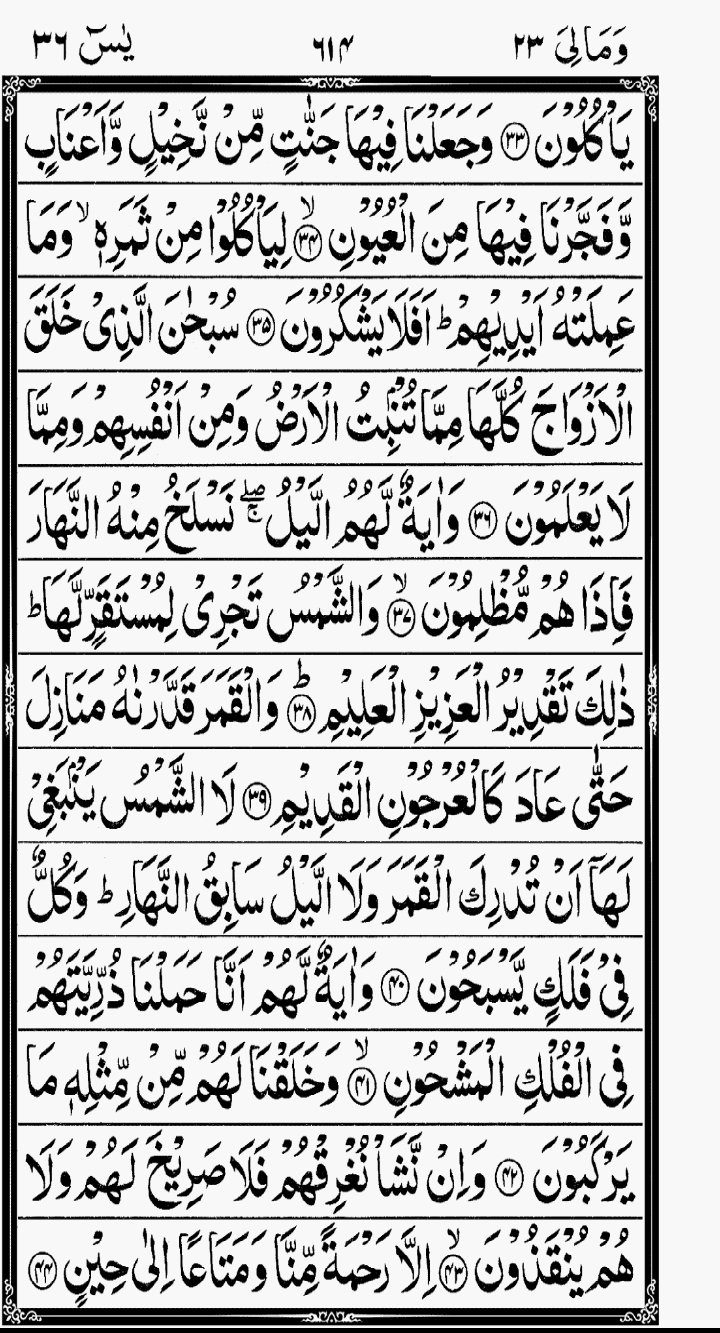 وَمَالِیَ ٢٣ ٦١٤ یٰسٓ ٣٦
یَاْكُلُوْنَ ﴿٣٣﴾ وَجَعَلْنَا فِیْهَا جَنّٰتٍ مِّنْ نَّخِیْلٍ وَّاَعْنَابٍ
وَّفَجَّرْنَا فِیْهَا مِنَ الْعُیُوْنِ ﴿٣٤﴾ۙ لِیَاْكُلُوْا مِنْ ثَمَرِهٖ ۙ وَمَا
عَمِلَتْهُ اَیْدِیْهِمْ ؕ اَفَلَا یَشْكُرُوْنَ ﴿٣٥﴾ سُبْحٰنَ الَّذِیْ خَلَقَ
الْاَزْوَاجَ كُلَّهَا مِمَّا تُنْۢبِتُ الْاَرْضُ وَمِنْ اَنْفُسِهِمْ وَمِمَّا
لَا یَعْلَمُوْنَ ﴿٣٦﴾ وَاٰیَةٌ لَّهُمُ الَّیْلُ ۖۚ نَسْلَخُ مِنْهُ النَّهَارَ
فَاِذَا هُمْ مُّظْلِمُوْنَ ﴿٣٧﴾ۙ وَالشَّمْسُ تَجْرِیْ لِمُسْتَقَرٍّ لَّهَا ؕ
ذٰلِكَ تَقْدِیْرُ الْعَزِیْزِ الْعَلِیْمِ ﴿٣٨﴾ؕ وَالْقَمَرَ قَدَّرْنٰهُ مَنَازِلَ
حَتّٰی عَادَ كَالْعُرْجُوْنِ الْقَدِیْمِ ﴿٣٩﴾ لَا الشَّمْسُ یَنْۢبَغِیْ
لَهَاۤ اَنْ تُدْرِكَ الْقَمَرَ وَلَا الَّیْلُ سَابِقُ النَّهَارِ ؕ وَكُلٌّ
فِیْ فَلَكٍ یَّسْبَحُوْنَ ﴿٤٠﴾ وَاٰیَةٌ لَّهُمْ اَنَّا حَمَلْنَا ذُرِّیَّتَهُمْ
فِی الْفُلْكِ الْمَشْحُوْنِ ﴿٤١﴾ۙ وَخَلَقْنَا لَهُمْ مِّنْ مِّثْلِهٖ مَا
یَرْكَبُوْنَ ﴿٤٢﴾ وَاِنْ نَّشَاْ نُغْرِقْهُمْ فَلَا صَرِیْخَ لَهُمْ وَلَا
هُمْ یُنْقَذُوْنَ ﴿٤٣﴾ۙ اِلَّا رَحْمَةً مِّنَّا وَمَتَاعًا اِلٰی حِیْنٍ ﴿٤٤﴾